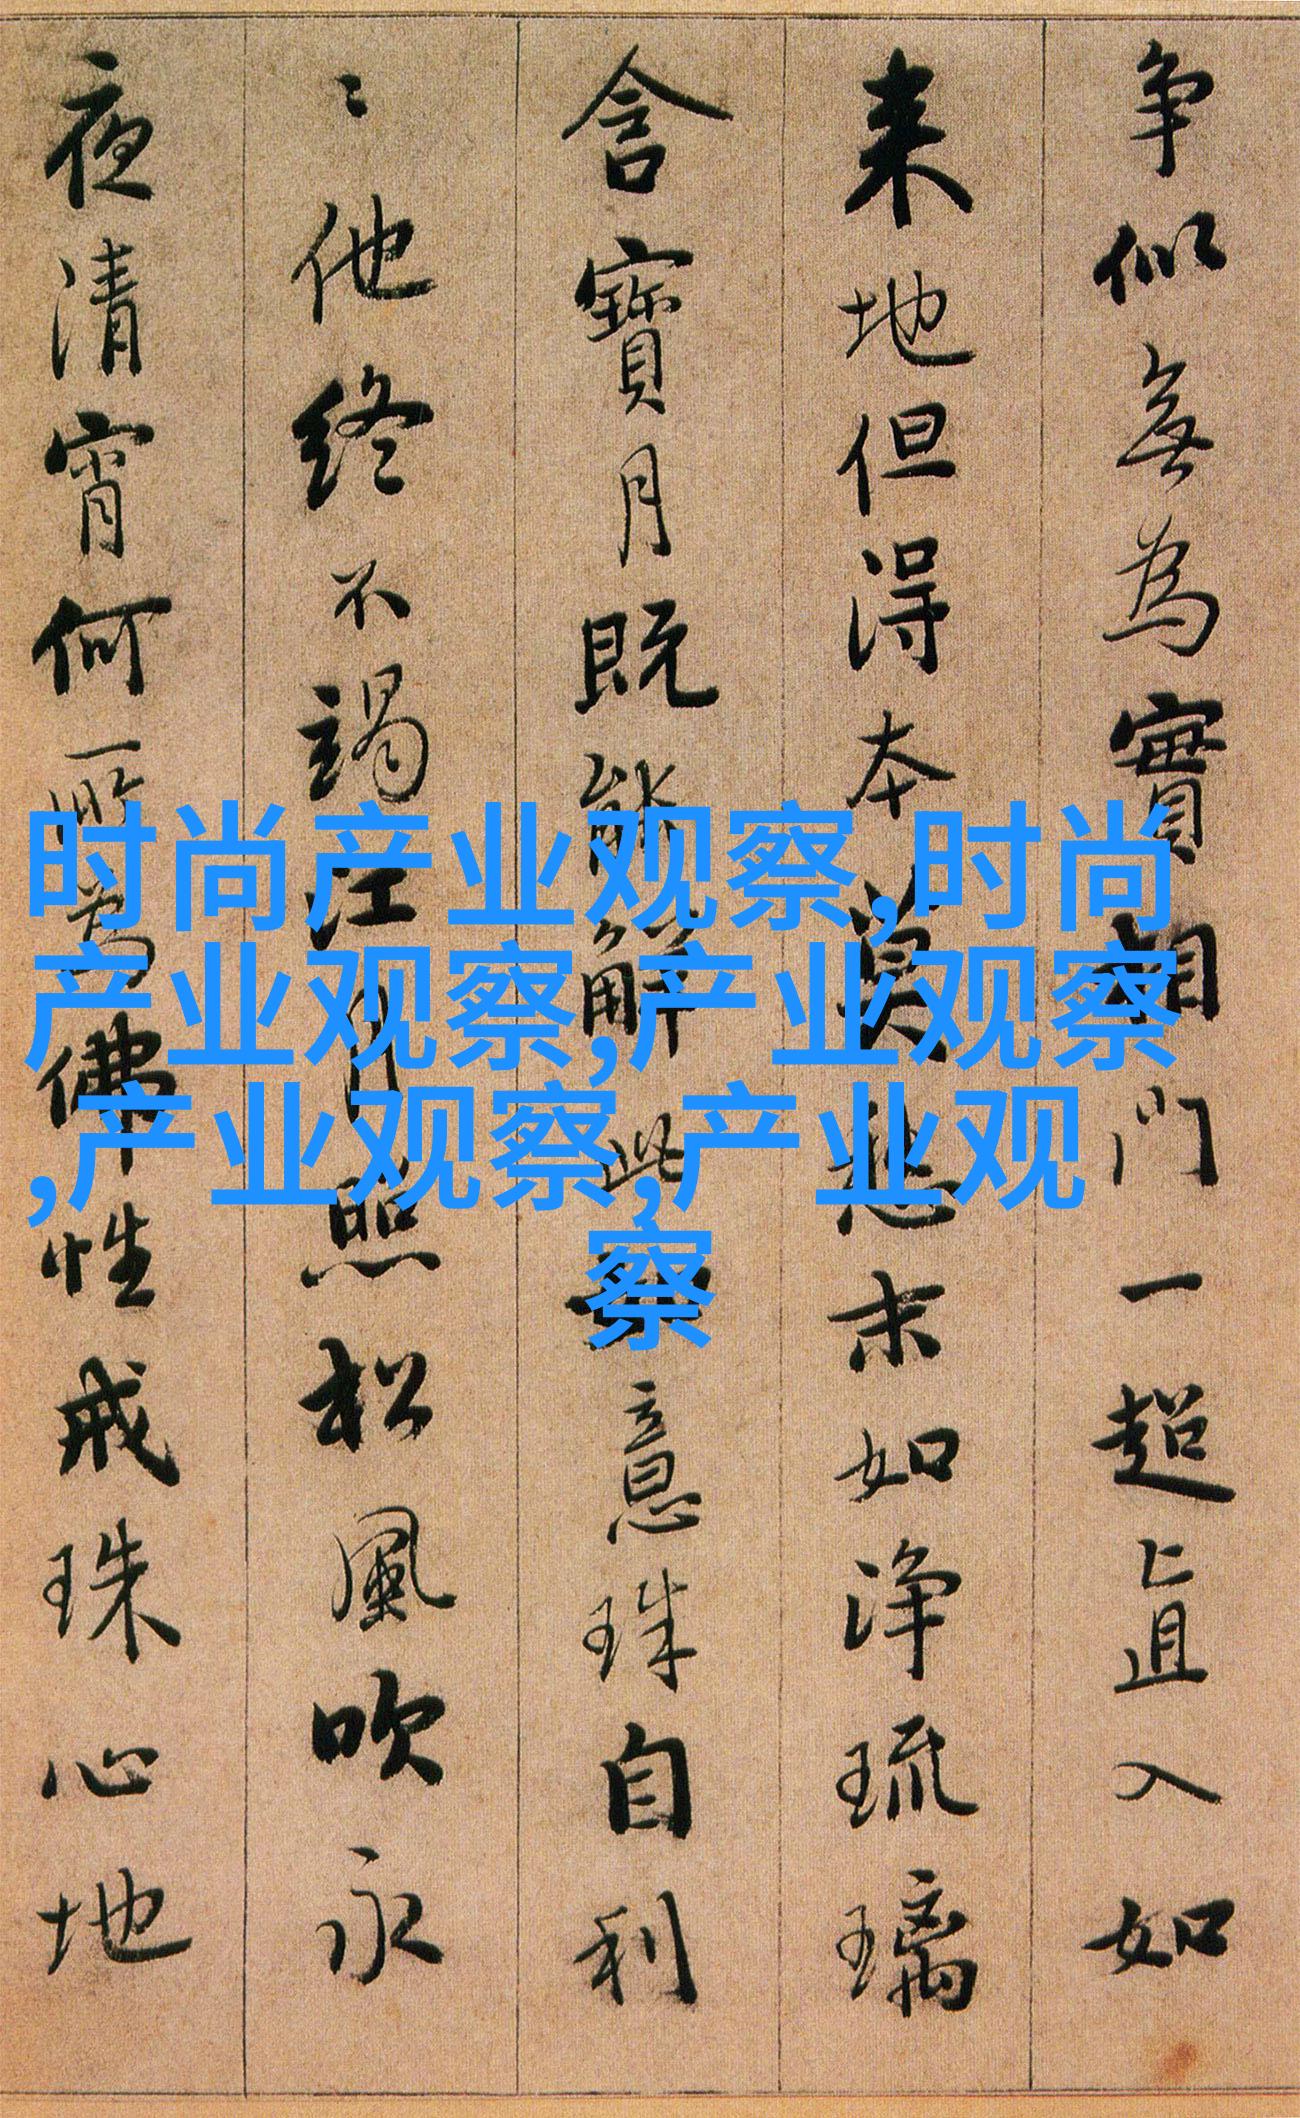 争似無為實相門一超直入如
来地但得本莫愁末如净琉璃
含寶月既能解此如意珠自利
〻他終不竭江月照松風吹永
夜清宵何所為佛性戒珠心地
时尚产业观察,时尚
产业观察,产业观察
,产业观察,产业观
察